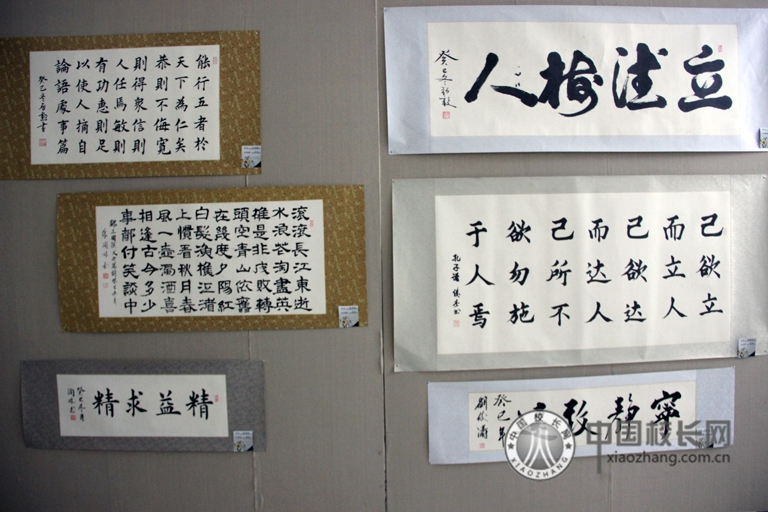 能行五者於
天下為仁矣
恭則不侮寬
則得衆信則
人任焉敏則
有功惠則足
以使人摘自
論語處事篇
癸巳冬 書
滾滾長江東逝
水浪花淘盡英
雄是非成敗轉
頭空青山依舊
在幾度夕陽紅
白髮漁樵江渚
上慣看秋月春
風一壺濁酒喜
相逢古今多少
事都付笑談中
精益求精
癸巳冬月
立德樹人
癸巳冬
己欲立
而立人
己欲达
而达人
己所不
欲勿施
于人焉
孔子語
寧靜致
癸巳年
中国校长网
XIAOZHANG
中国校长网
xiaozhang.com.cn